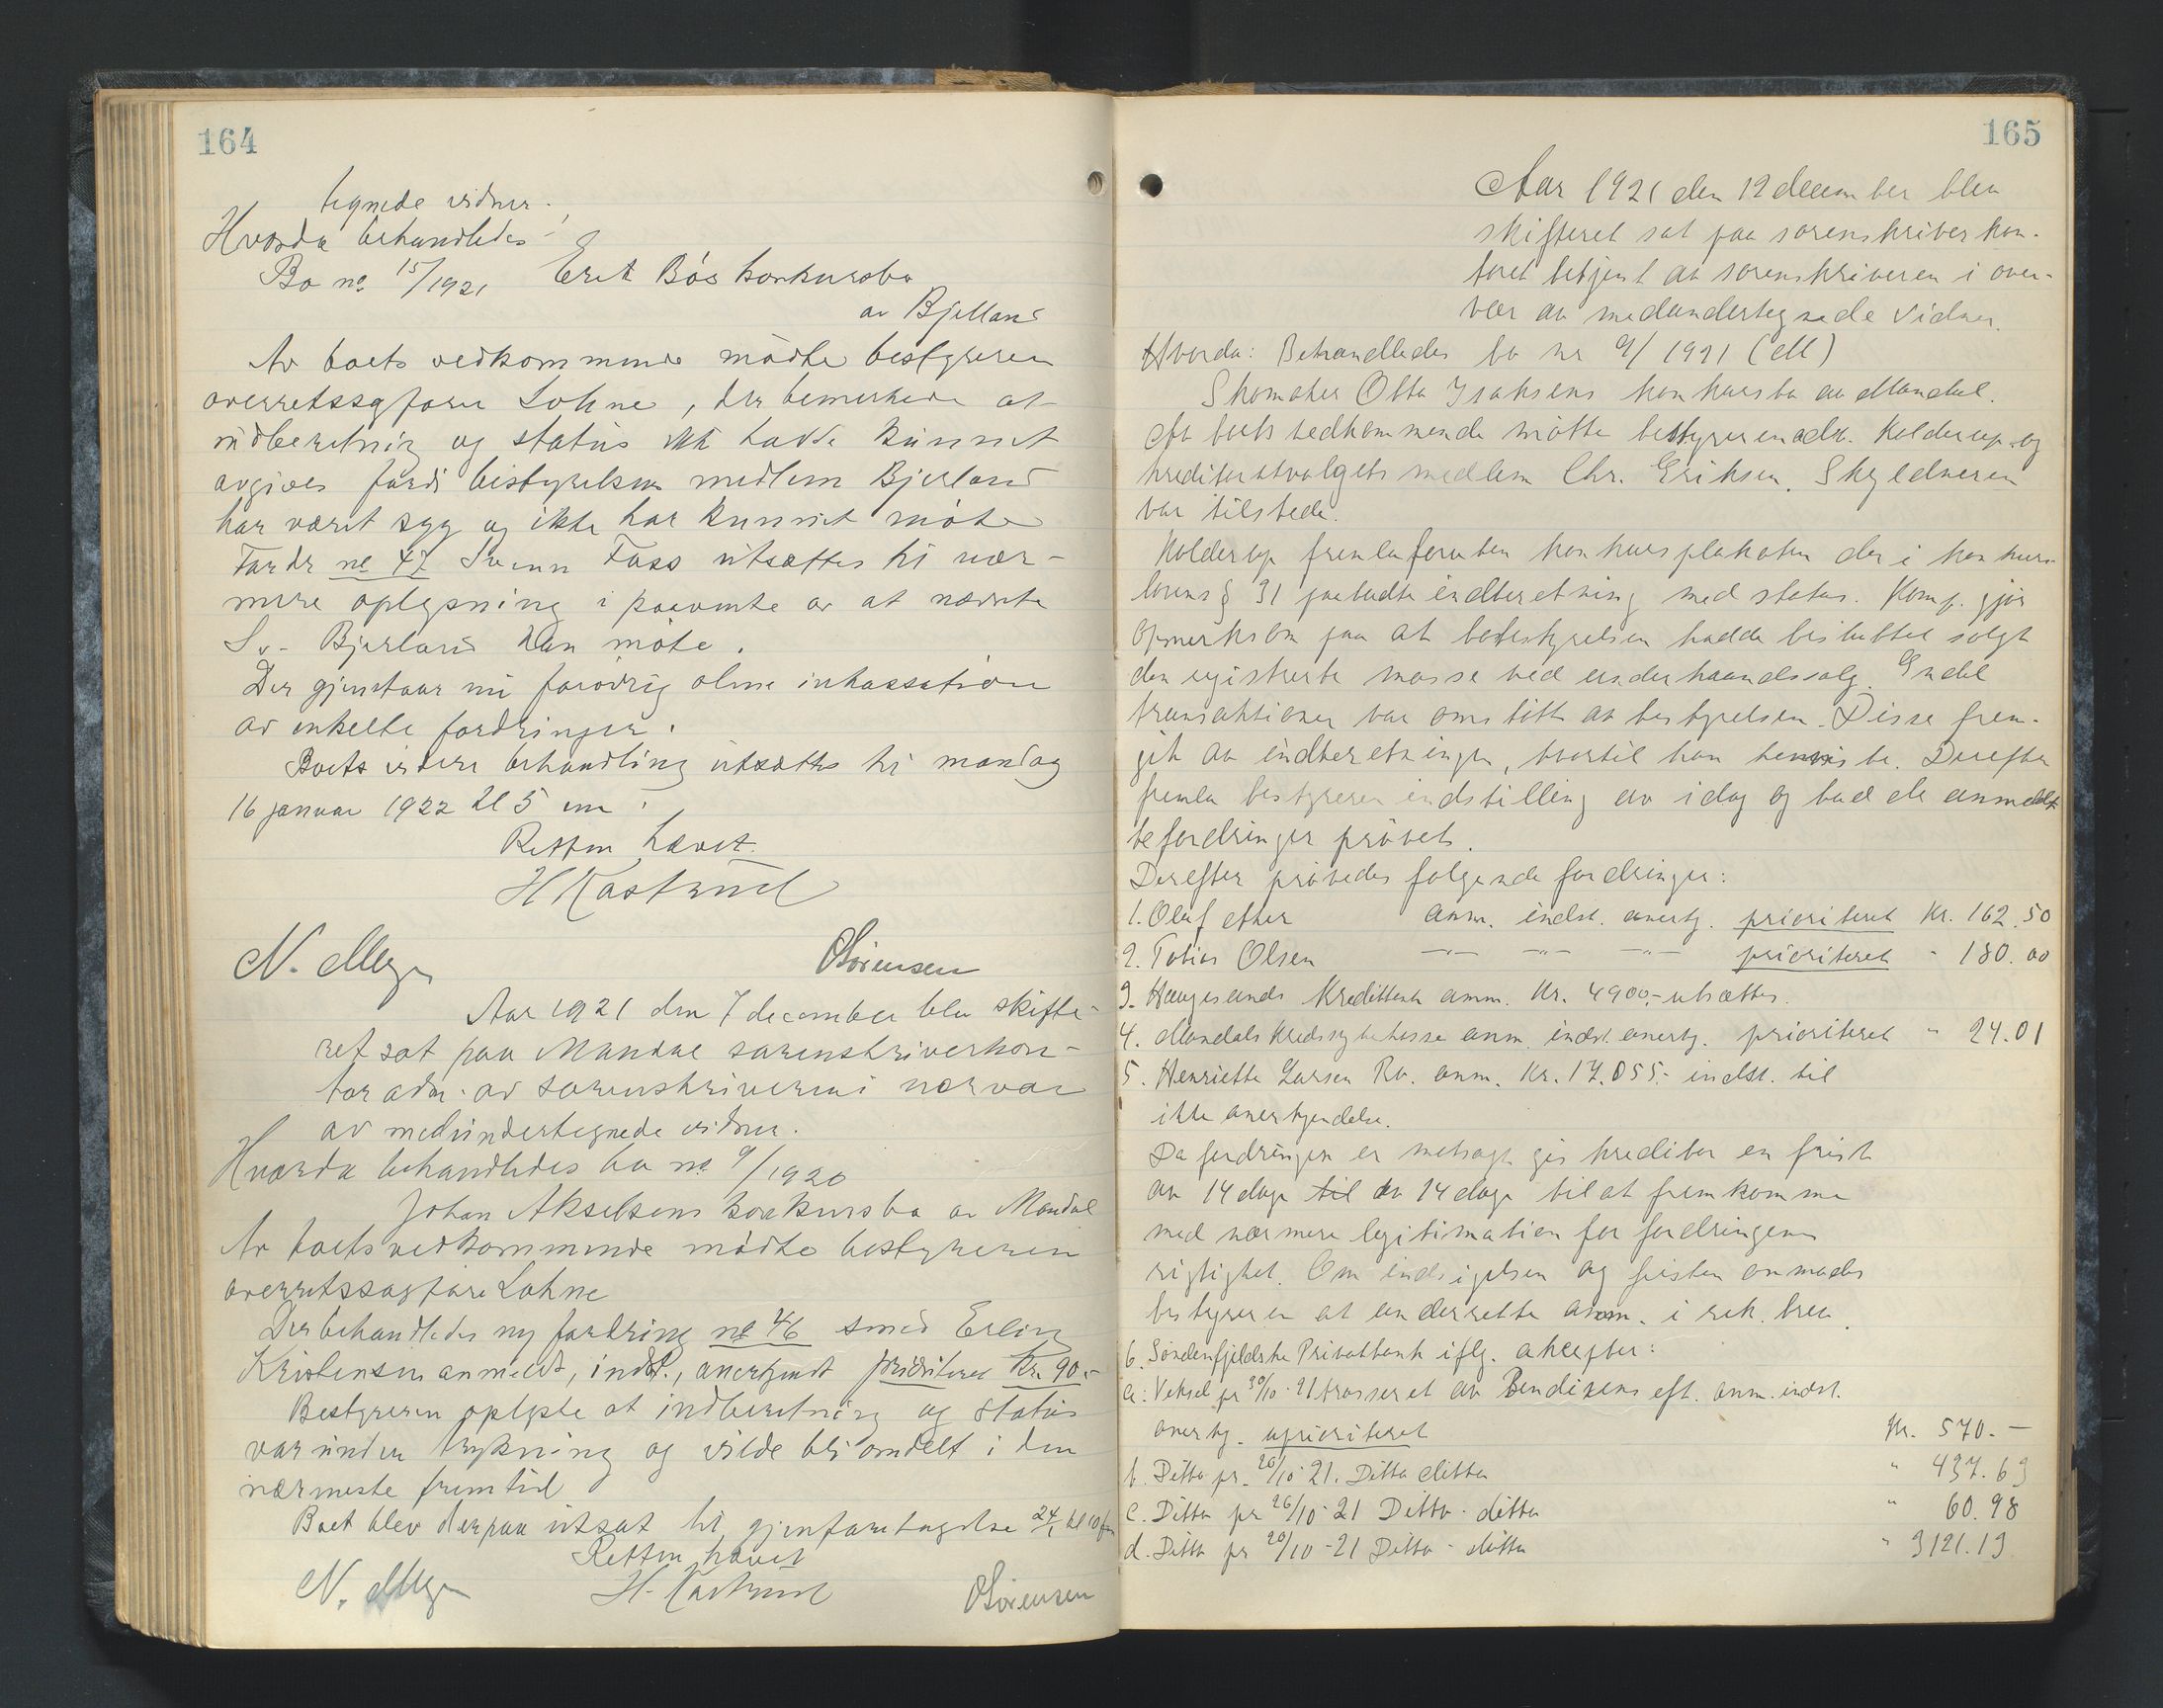 164
tegnede vidner.
Hvorda behandledes
Bo no 15/1921 Erik Bös konkursbo
av Bjelland
Av boets vedkommende mödte bestyreren
overretssagförer Lohne, der bemerkede at
indberetning og status ikke havde kunnet
avgives fordi bestyrelsens medlem Bjerland
har været syg og ikke har kunnet möte
Fordr no 47 Svenn Foss utsættes til nær-
mere oplysning i paavente av at nævnte
S. Bjerland kan möte.
Der gjenstaar nu forövrig alene inkassation
av enkelte fordringer.
Boets videre behandling utsættes til mandag
16 januar 1922 kl 5 em.
Retten hævet.
H Kastrud
N. Meyer OSörensen
Aar 1921 den 7 december blev skifte-
ret sat paa Mandal sorenskriverkon-
tor adm. av sorenskriveren i nærvær
av medundertegnede vidner.
Hvorda behandledes bo no 9/1920
Johan Akselsens konkursbo av Mandal
Av boets vedkommende mödte bestyreren
overretssagförer Lohne
Der behandledes ny fordring no 46 smed Erling
Kristensen anmeldt, indst., anerkjendt prioriteret Kr. 90.-
Bestyreren oplyste at indberetning og status
var under trykning og vilde bli omdelt i den
nærmeste fremtid
Boet blev derpaa utsat til gjenforetagelse 24/1 kl 10 fm
Retten hævet
N. Meyer H. Kastrud OSörensen
165
Aar 1921 den 12 december blev
skifteret sat paa sorenskriverkon-
toret betjent av sorenskriveren i over-
vær av medundertegnede vidner.
Hvorda: Behandledes bo nr 9/1921 (M)
Skomaker Otto Isaksens konkursbo av Mandal.
Av boets vedkommende mötte bestyreren adv. Kolderup og
kreditorutvalgets medlem Chr. Eriksen. Skyldneren
var tilstede.
Kolderup fremla foruten konkursplakaten den i konkurs-
lovens § 31 paabudte indberetning med status. Komp. gjör
opmerksom paa at bobestyrelsen hadde besluttet solgt
den registrerte masse ved underhaandssalg. Endel
transaktioner var omstött av bestyrelsen. Disse frem-
gik av indberetningen, hvortil han henviste. Derefter
fremla bestyreren indstilling av idag og bad de anmeldt-
te fordringer prövet.
Derefter prövedes følgende fordringer:
1. Oluf Aker anm. indst. anerkj. prioriteret Kr. 162.50
2. Tobias Olsen -"- -"- -"- prioriteret - 180.00
3. Haugesunds Kreditbank anm. Kr. 4900.- utsættes.
4. Mandals Kredssykekasse anm. indst. anerkj. prioriteret " 24.01
5. Henriette Larsen Rv. anm. Kr. 17.055.- indst. til
ikke anerkjendelse.
Da fordringen er motsagt gis kreditor en frist
av 14 dage til av 14 dage til at fremkomme
med nærmere legitimation for fordringens
rigtighet. Om indsigelsen og fristen anmodes
bestyreren at underrette anm. i rek. brev.
6. Söndenfjeldske Privatbank iflg. aksepter:
a: Veksel pr 30/10-21 trasseret av Bendixens eft. anm. indst.
anerkj. uprioriteret Kr. 570.—
b. Ditto pr. 26/10-21. Ditto ditto " 437.63
c. Ditto pr 26/10-21 Ditto - ditto " 60.98
d. Ditto pr 20/10-21 Ditto - ditto " 3121.13